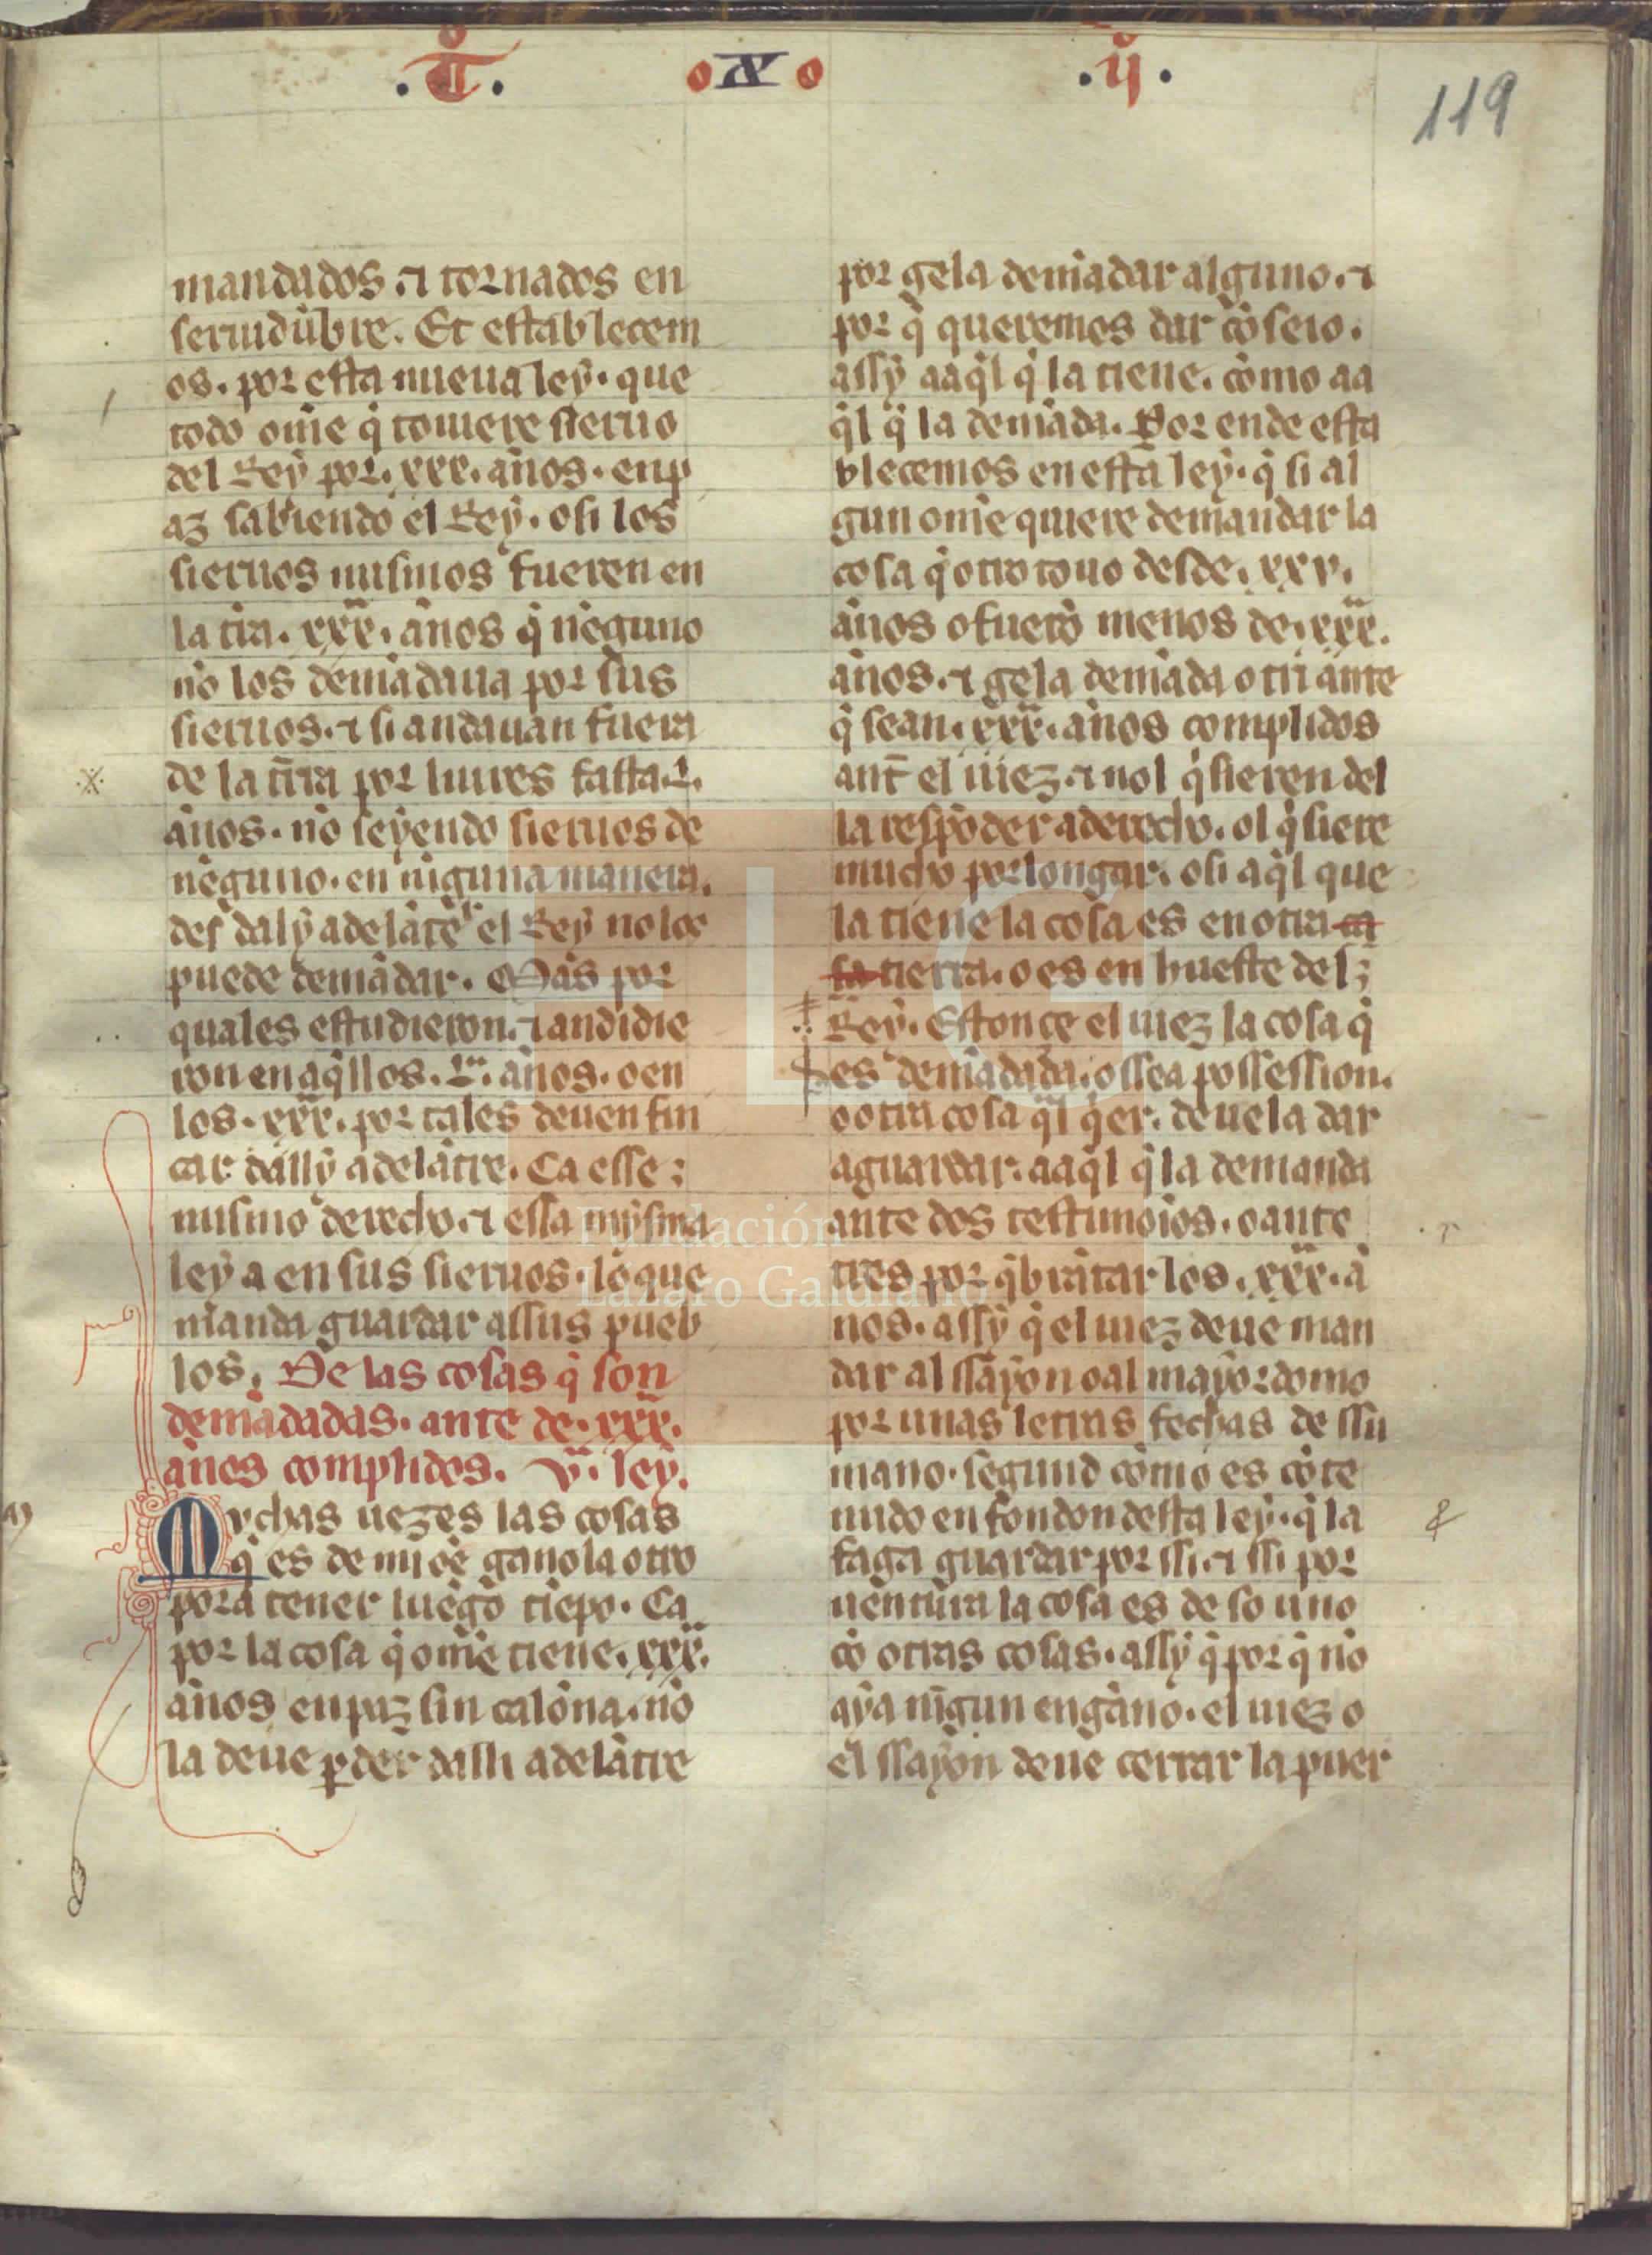 .T̊. X .ij̊.
119
mandados. ⁊ tornados en
seruidũbre. Et establecem
os. por esta nueua ley. que
todo om̃e q̃ touiere sieruo
del Rey por. xxx. años. enp
az sabiendo el Rey. osi los
sieruos mismos fueren en
la tr̃ra. xxx. años q̃ nẽguno
nõ los demãdaua por sus
sieruos. ⁊ si andauan fuera
de la tr̃ra por liures fasta. L.
años. nõ seyendo sieruos de
nẽguno. en nĩguna manera.
des daly adelãte el Rey no los
puede demãdar. Mas por
quales estudieron. ⁊ andidie
ron en aq̃llos. L. años. o en
los. xxx. por tales deuen fin
car dally adelãtre. Ca esse
mismo derecho. ⁊ essa mysma
ley a en sus sieruos. lo que
manda guardar assus pueb
los. De las cosas q̃ son
demãdadas. ante de. xxx.
años complidos. v. ley.
Mvchas uezes las cosas
q̃ es de mĩ oẽ gano la otro
pora tener luego tiẽpo. Ca
por la cosa q̃ om̃e tiene. xxx.
años en paz sin calõna. nõ
la deue ꝑder dalli adelãtre
por gela demãdar alguno. ⁊
por q̃ queremos dar cõseio.
assy aaq̃l q̃ la tiene. cõmo aa
q̃l q̃ la demãda. Por ende esta
blecemos en esta ley. q̃ si al
gun om̃e quiere demandar la
cosa q̃ otro touo desde. xxv.
años o fuerõ menos de. xxx.
años. ⁊ gela demãda otri ante
q̃ sean. xxx. años complidos
ant̃ el iuez. ⁊ nol q̃sieren del
la respõder a derecho. ol q̃siere
mucho porlongar. osi aq̃l que
la tiene la cosa es en otra ca
sa tierra. o es en hueste del
Rey. Estonçe el iuez la cosa q̃
es demãdada. o ssea possession.
o otra cosa q̃l q̃er. deuela dar
aguardar. aaq̃l q̃ la demanda
ante dos testimoios. o ante
tres por q̃brãtar los. xxx. a
nos. assy q̃ el iuez deue man
dar al ssayon o al mayordomo
por unas letras fechas de ssu
mano. segund cõmo es cõte
nudo en fondon desta ley. q̃ la
faga guardar por ssi. ⁊ ssi por
uentura la cosa es de so uno
cõ otras cosas. assy q̃ por q̃ nõ
aya nĩgun engãno. el iuez o
el ssayon deue cerrar la puer
FLG
Fundación
Lázaro Galdiano